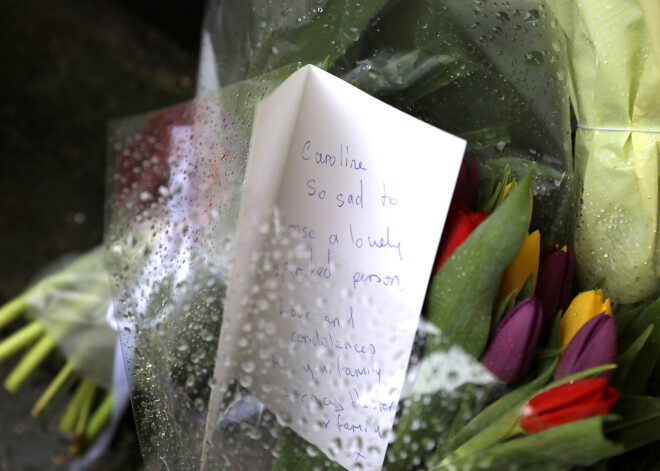 Caroline
So sad to
lose a lovely
spirited person.
Love and
condolences
family
family
x